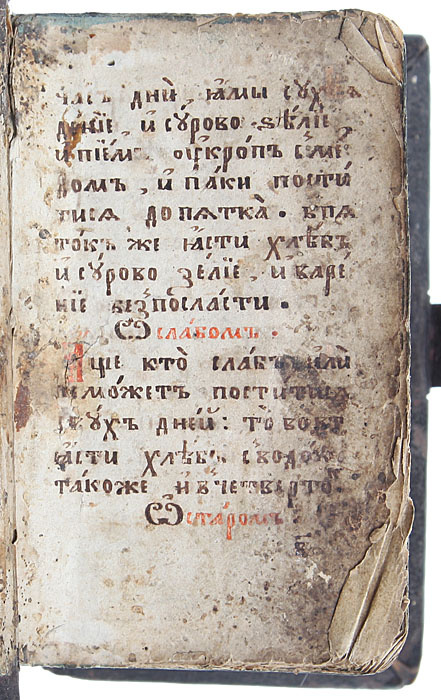 часъ дни, ꙗмы сухоя
дѣнїе, и сурово ѕелїе,
и пїемъ оукропъ с ме
домъ, и паки пости
тися до пятка̀. в пя
токъ же ꙗсти хлѣбъ
и сурово зелїе, и варе
нїе безъ посласти.
Ѡ слабомъ.
Аще кто̀ слабъ или
не мо́жетъ поститися
двухъ дней: то во вт
ꙗсти хлѣбъ с водою
такоже и в четверто.
Ѡ старомъ